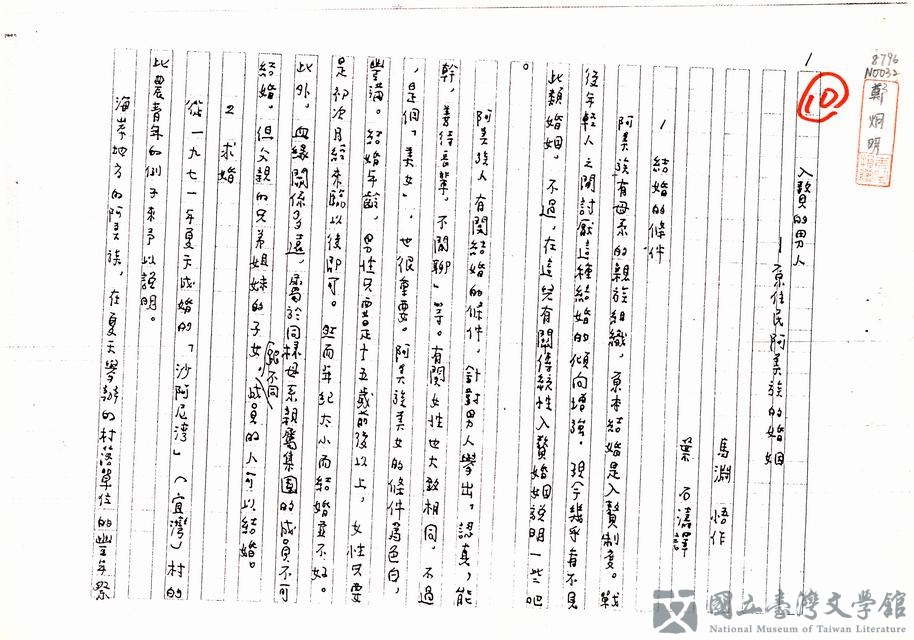 8796
N0032
鄭烱明
1
10
入贅的男人
—原住民阿美族的婚姻
馬淵 悟作
葉 石濤譯
1 結婚的條件
阿美族有母系的親族組織，原本結婚是入贅制度。戰
後年輕人之間討厭這種結婚的傾向增強。現今幾乎看不見
此類婚姻。不過，在這兒有關傳統性入贅婚姻說明一些吧
。
阿美族人有關結婚的條件，針對男人舉出，認真，能
幹，善待長輩，不閒聊」等。有關女性也大致相同，不過
，是個「美女」，也很重要。阿美族美女的條件為色白，
豐滿。結婚年齡，男性只要是十五歲前後以上，女性只要
是初次月經來臨以後即可。然而年紀大小而結婚並不好。
此外，血緣關係多遠，屬於同樣母系親屬集團的成員不可
結婚，但父親的兄弟姐妹的子女，(跟不同)成員的人可以結婚。
2 求婚
從一九七一年夏天成婚的「沙阿尼湾」（宜灣）村的
比農青年的例子來予以說明。
海岸地方的阿美族，在夏天舉辦的村落單位的豐年祭
國立臺灣文學館
National Museum of Taiwan Literature